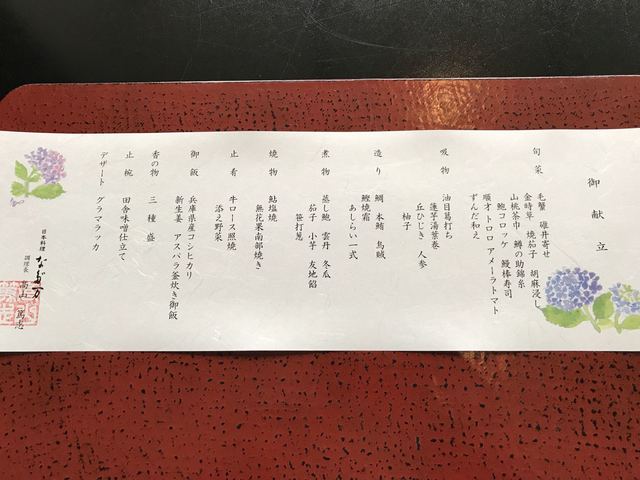 御献立
旬菜
毛蟹 碓井寄せ
金時草 焼茄子 胡麻浸し
山桃茶巾 鱒の助錦糸
鮑コロッケ 鰻棒寿司
順才トロロ アメーラトマト
ずんだ和え
吸物
油目葛打ち
蓮芋湯葉巻
丘ひじき 人参
柚子
造り
鯛 本鮪 烏賊
鰹焼霜
あしらい一式
煮物
蒸し鮑 雲丹 冬瓜
茄子 小芋 友地餡
笹打葱
焼物
鮎塩焼
無花果南部焼き
止肴
牛ロース照焼
添え野菜
御飯
兵庫県産コシヒカリ
新生姜 アスパラ釜炊き御飯
香の物
三種盛
止椀
田舎味噌仕立て
デザート
グラマラッカ
日本料理 なだ万
調理長 高山